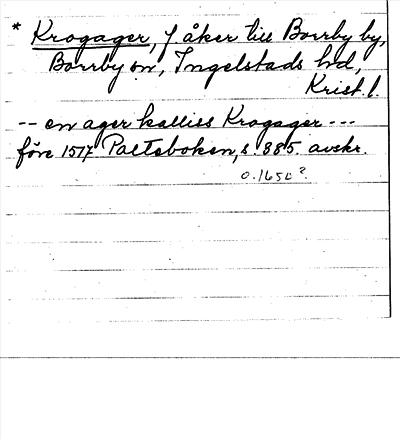 * Krogager, f. åker till Borrby by,
Borrby sn, Ingelstads hd,
Krist. l.
-- en ager kalliss Krogager ---
före 1517 Paltsboken, s. 885. avskr.
0.165c?